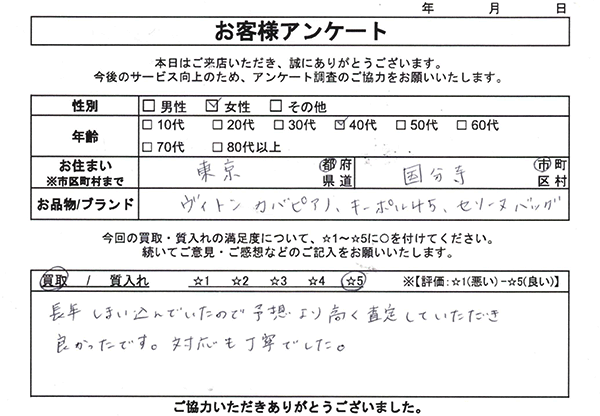 年 月 日
お客様アンケート
本日はご来店いただき、誠にありがとうございます。
今後のサービス向上のため、アンケート調査のご協力をお願いいたします。
性別 □ 男性 ☑ 女性 □ その他
年齢 □ 10代 □ 20代 □ 30代 ☑ 40代 □ 50代 □ 60代
□ 70代 □ 80代以上
お住まい ※市区町村まで 東京 都府県道 国分寺 市町区村
お品物/ブランド ヴィトン カバピアノ、キーポル45、セリーヌバッグ
今回の買取・質入れの満足度について、☆1～☆5に○を付けてください。
続いてご意見・ご感想などのご記入をお願いいたします。
買取 / 質入れ ☆1 ☆2 ☆3 ☆4 ☆5 ※【評価:☆1(悪い)-☆5(良い)】
長年しまい込んでいたので予想より高く査定していただき
良かったです。対応も丁寧でした。
ご協力いただきありがとうございました。